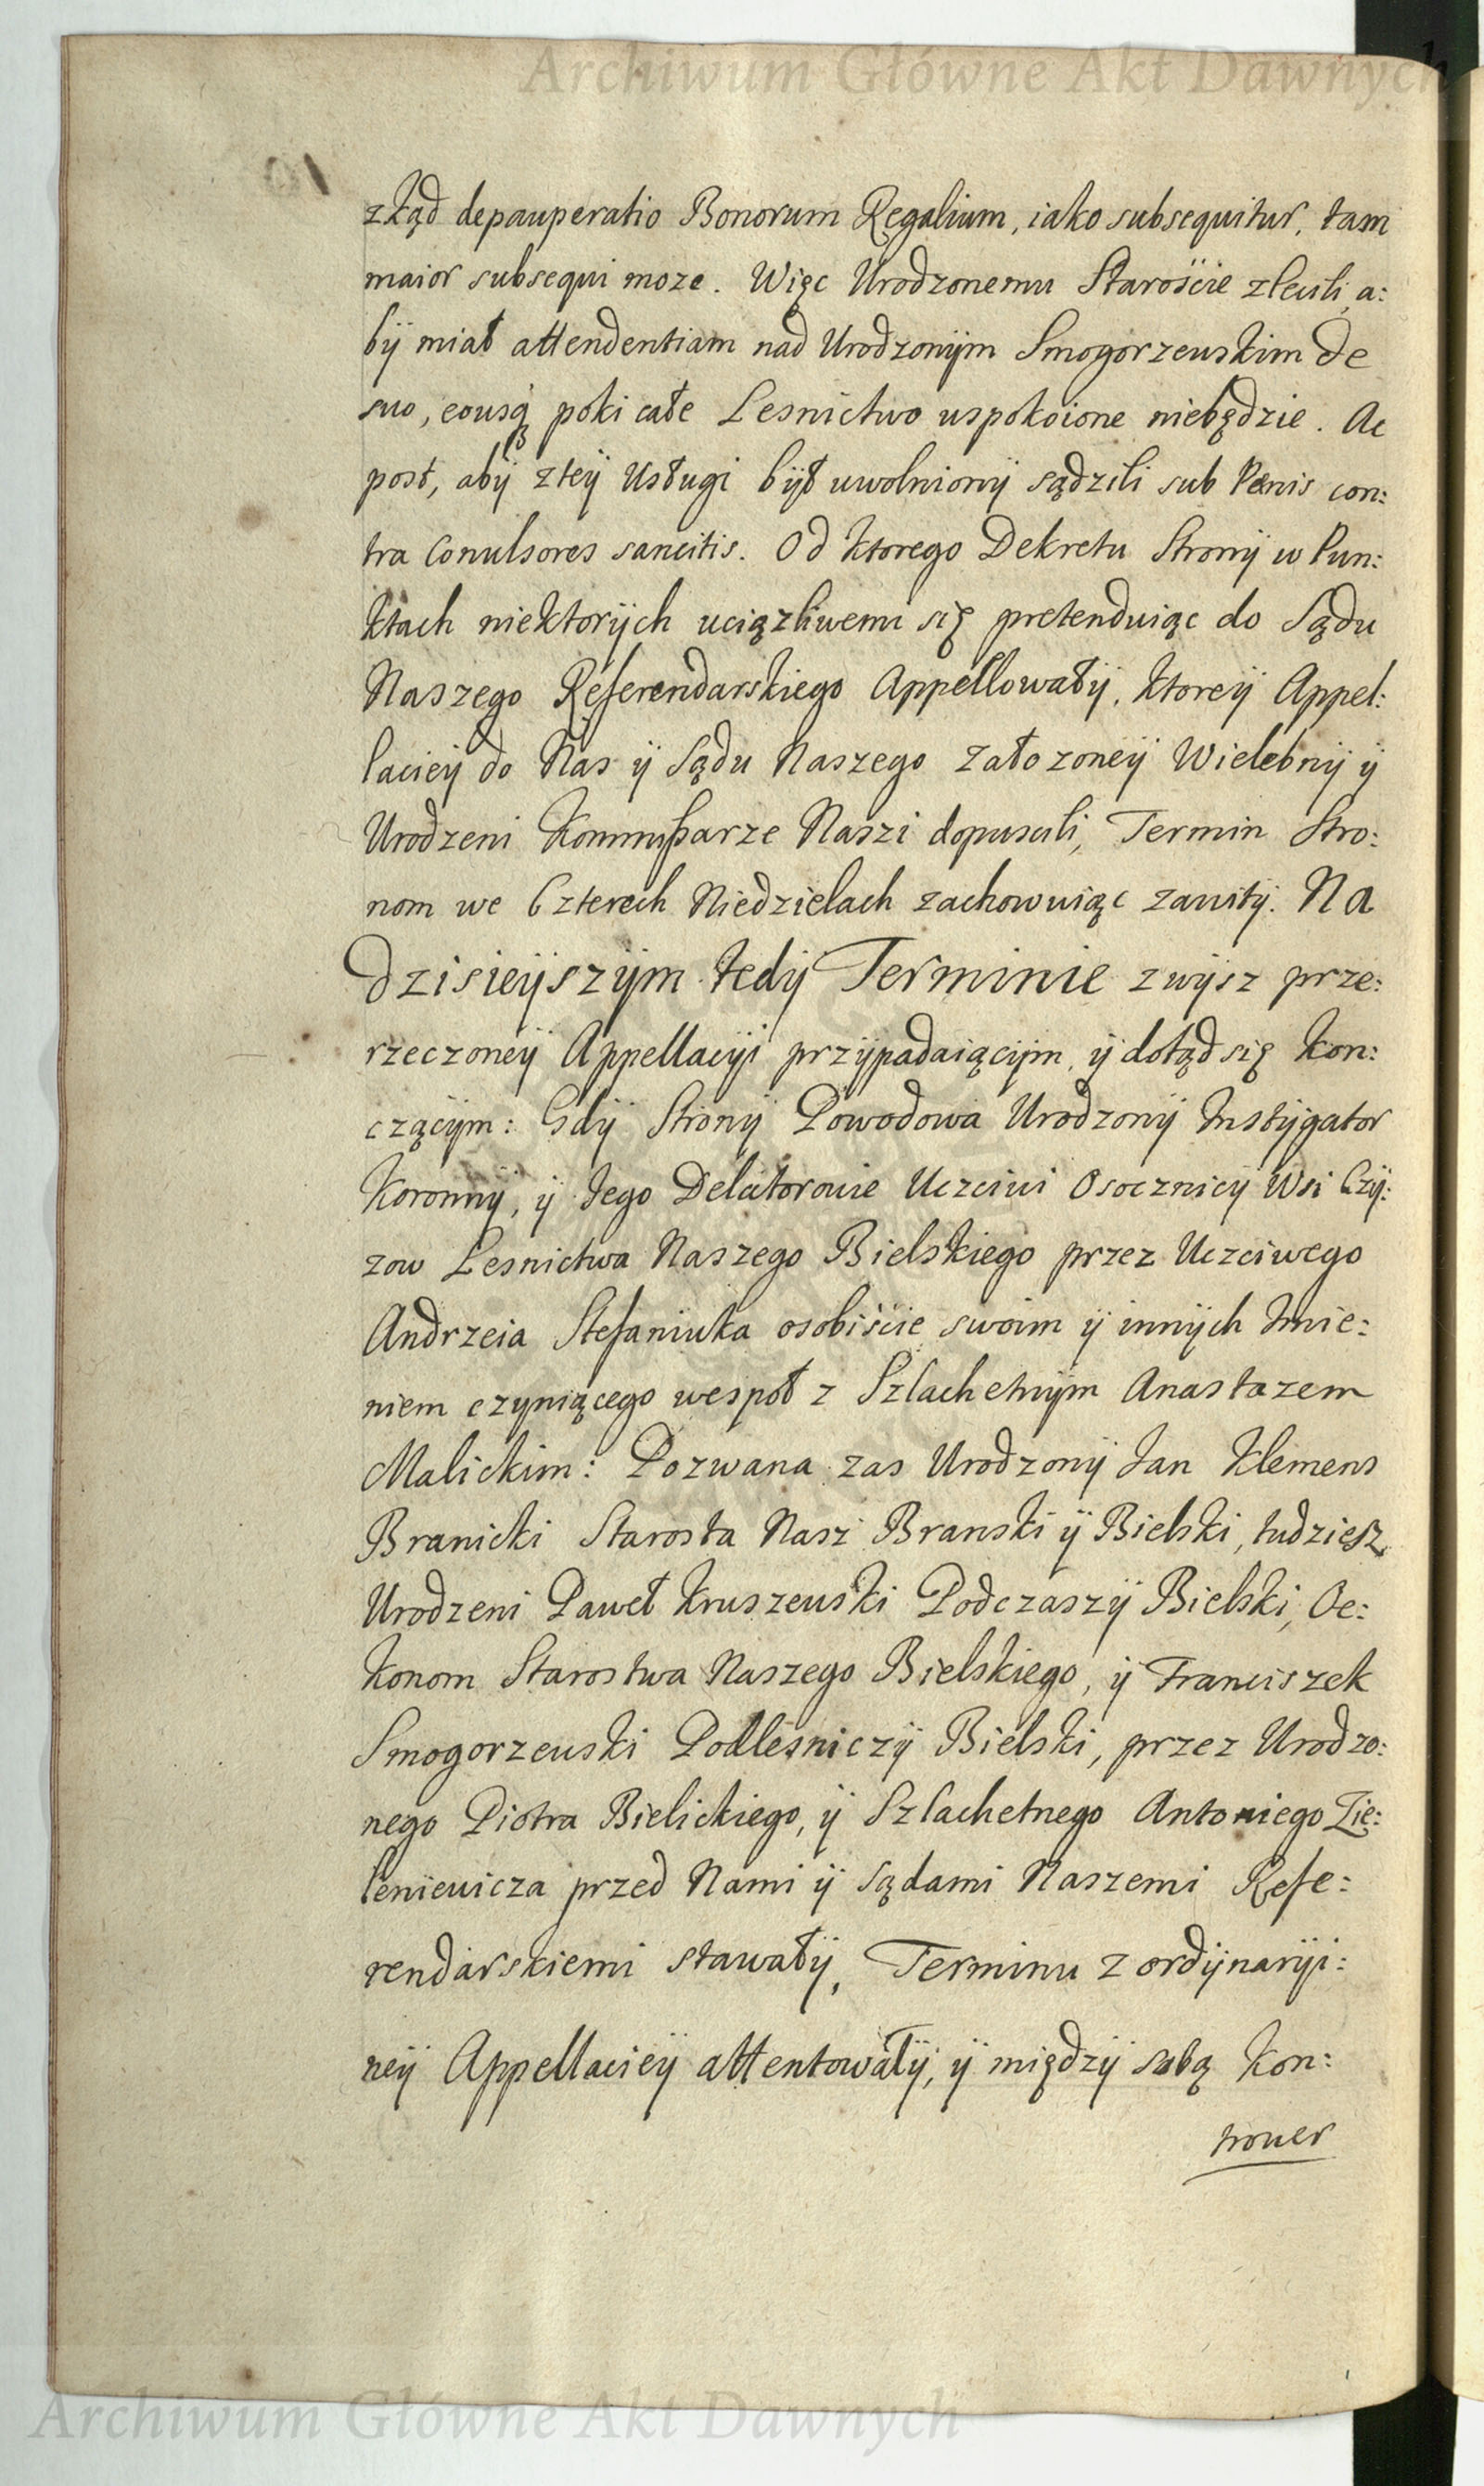 Archiwum Główne Akt Dawnych
ztąd depauperatio Bonorum Regalium, iako subsequitur, tam
maior subsequi moze. Więc Urodzonemu Starośćie zlecili, a:
bÿ miał attendentiam nad Urodzonÿm Smogorzewskim de
suo, eousq poki całe Lesnictwo uspokoione niebędzie. Ac
post, abÿ z teÿ Usługi bÿł uwolnionÿ sądzili sub Pænis con:
tra Conulsores sancitis. Od ktorego Dekretu Stronÿ w Pun:
ktach niektorÿch uciązliwemi się pretenduiąc do Sądu
Naszego Referendarskiego Appellowałÿ, ktoreÿ Appel:
lacieÿ do Nas ÿ Sądu Naszego załozoneÿ Wielebnÿ ÿ
Urodzeni Kommißarze Naszi dopuscili, Termin Stro:
nom we Czterech Niedzielach zachowuiąc zawitÿ. Na
dzisieÿszÿm tedÿ Terminie zwÿsz prze:
rzeczoneÿ Appellacÿi przÿpadaiącÿm, ÿ dotąd się kon:
czącÿm: Gdÿ Stronÿ Powodowa Urodzonÿ Instÿgator
Koronnÿ, ÿ Jego Delatorowie Uczciwi Osocznicÿ Wsi Czÿ:
zow Lesnictwa Naszego Bielskiego przez Uczciwego
Andrzeia Stefaniuka osobiśćie swoim ÿ innÿch Imie:
niem czyniącego wespoł z Szlachetnÿm Anastazem
Malickim: Pozwana zas Urodzonÿ Jan Klemens
Branicki Starosta Nasz Branski ÿ Bielski, tudziesz
Urodzeni Paweł Kruszewski Podczaszÿ Bielski, Oe:
konom Starostwa Naszego Bielskiego, ÿ Franciszek
Smogorzewski Podlesniczÿ Bielski, przez Urodzo:
nego Piotra Bielickiego, ÿ Szlachetnego Antoniego Zie:
leniewicza przed Nami ÿ Sądami Naszemi Refe:
rendarskiemi stawałÿ, Terminu z ordÿnarÿi:
neÿ Appellacieÿ attentowałÿ, ÿ międzÿ sobą kon:
trouer
Archiwum Główne Akt Dawnych